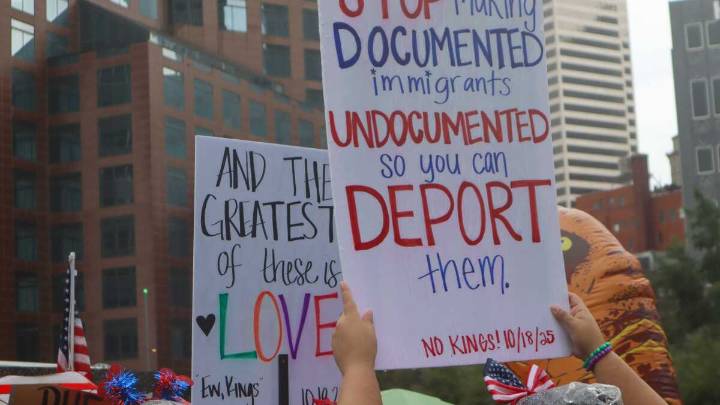 STOP making
DOCUMENTED
immigrants
UNDOCUMENTED
so you can
DEPORT
them.
NO KINGS! 10/18/25
AND THE
GREATEST
of these is
LOVE
"Ew, Kings"
10/18